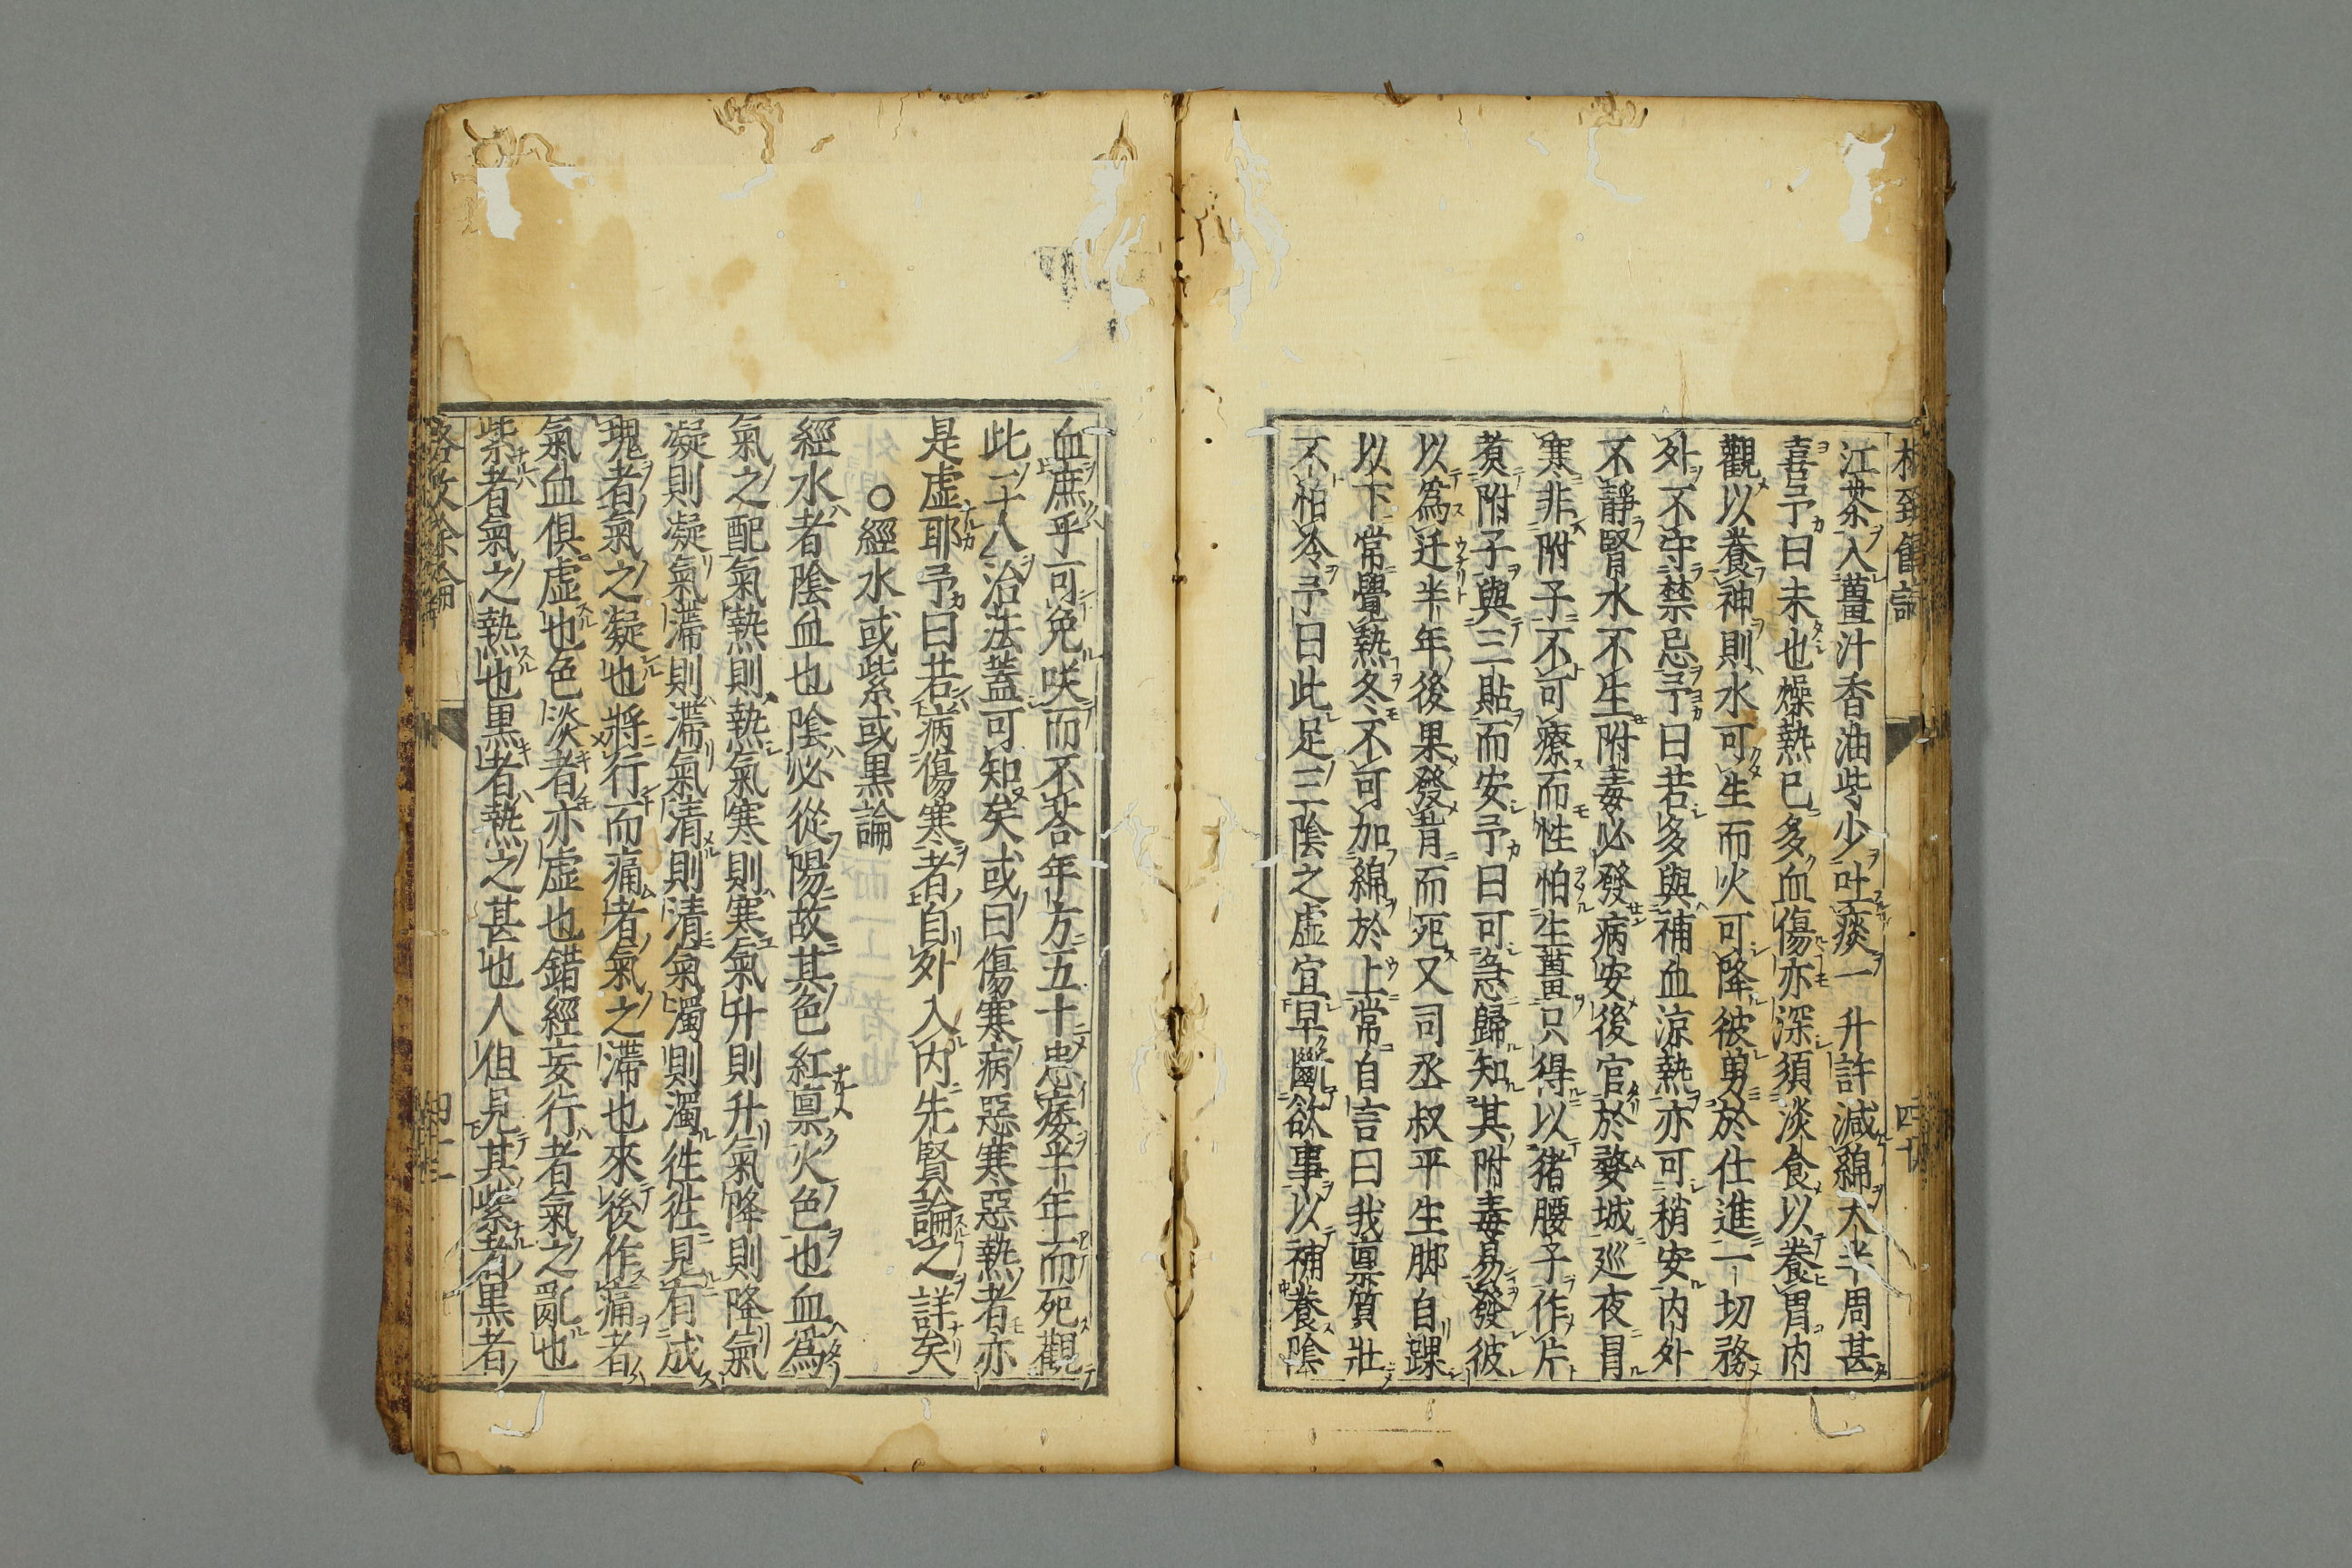 江茶入薑汁香油些少吐痰一升許減綿大半周甚
喜予曰未也燥熱已多血傷亦深須淡食以養胃内
觀以養神則水可生而火可降彼勇於仕進一切務
外不守禁忌予曰若多與補血涼熱亦可稍安内外
不靜腎水不生附毒必發病安後官於婺城巡夜冐
寒非附子不可療而性怕生薑只得以猪腰子作片
煑附子與三貼而安予曰可急歸知其附毒易發彼
以為迂半年後果發背而死又司丞叔平生脚自踝
以下常覺熱冬不可加綿於上常自言曰我禀質壯
不怕冷予曰此足三陰之虚宜早斷欲事以補養陰
血庶乎可免咲而不荅年方五十患痿半年而死觀
此二十八治法蓋可知矣或曰傷寒病惡寒惡熱者亦
是虚耶予曰若病傷寒者自外入内先賢論之詳矣
○經水或紫或黒論
經水者陰血也陰必從陽故其色紅禀火色也血為
氣之配氣熱則熱氣寒則寒氣升則升氣降則降氣
凝則凝氣滯則滯氣清則清氣濁則濁徃徃見有成
塊者氣之凝也將行而痛者氣之滯也來後作痛者
氣血俱虚也色淡者亦虚也錯經妄行者氣之亂也
紫者氣之熱也黒者熱之甚也人但見其紫者黒者
格致餘論